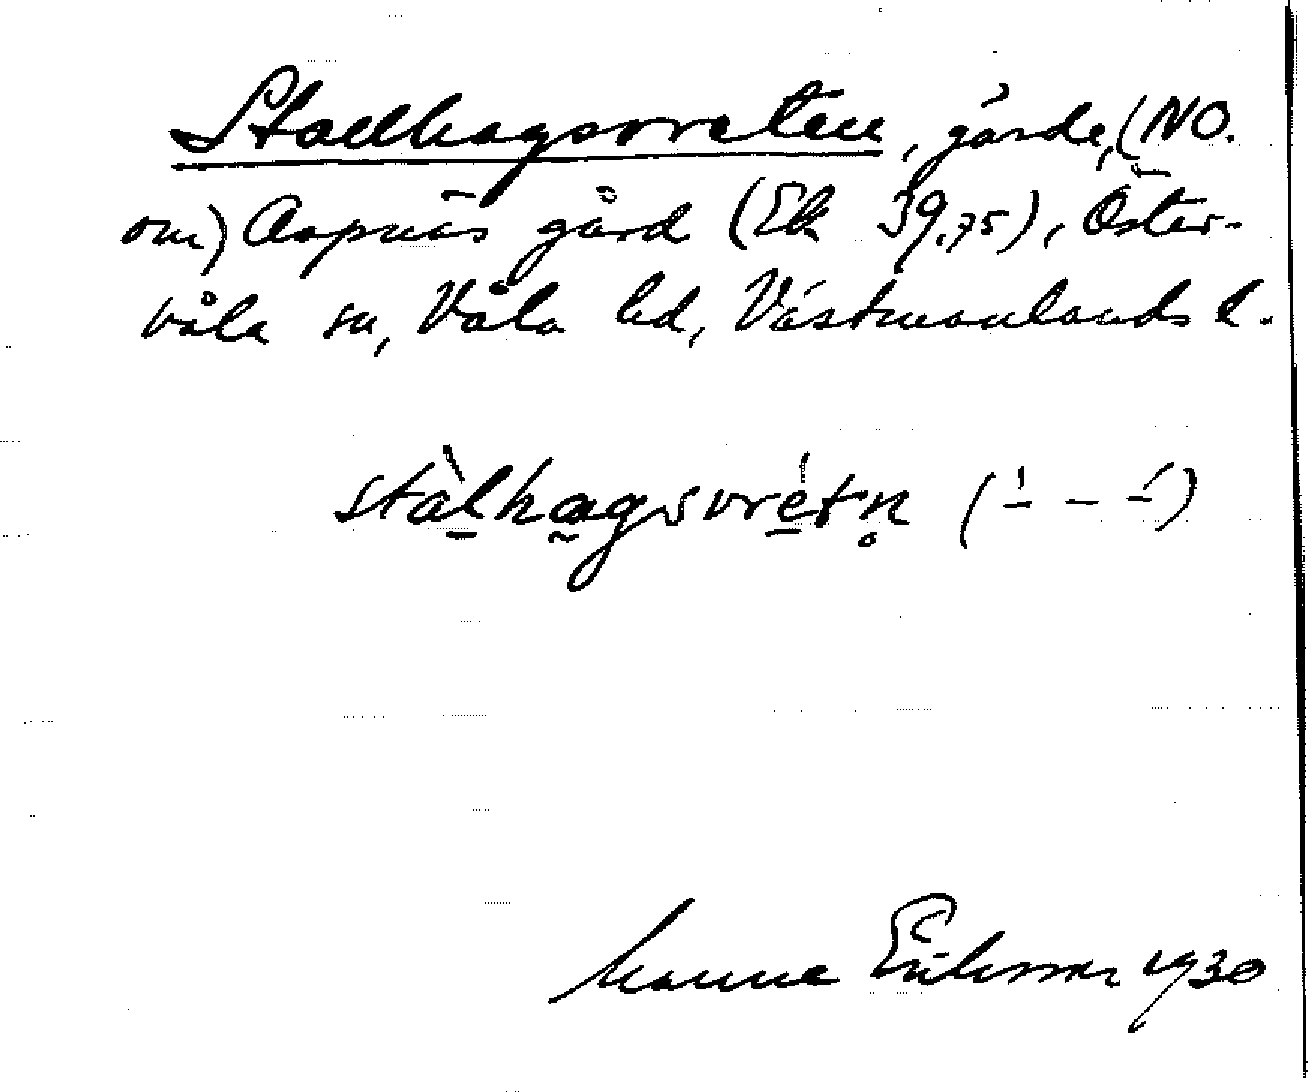 Stadhagsvreten, gärde, (NO.
om) Aspnäs gård (Ek 39,75), Öster-
våla sn, Våla hd, Västmanlands l.
stàlhagsvrétn (–́ – –́)
Manne Eriksson 1930